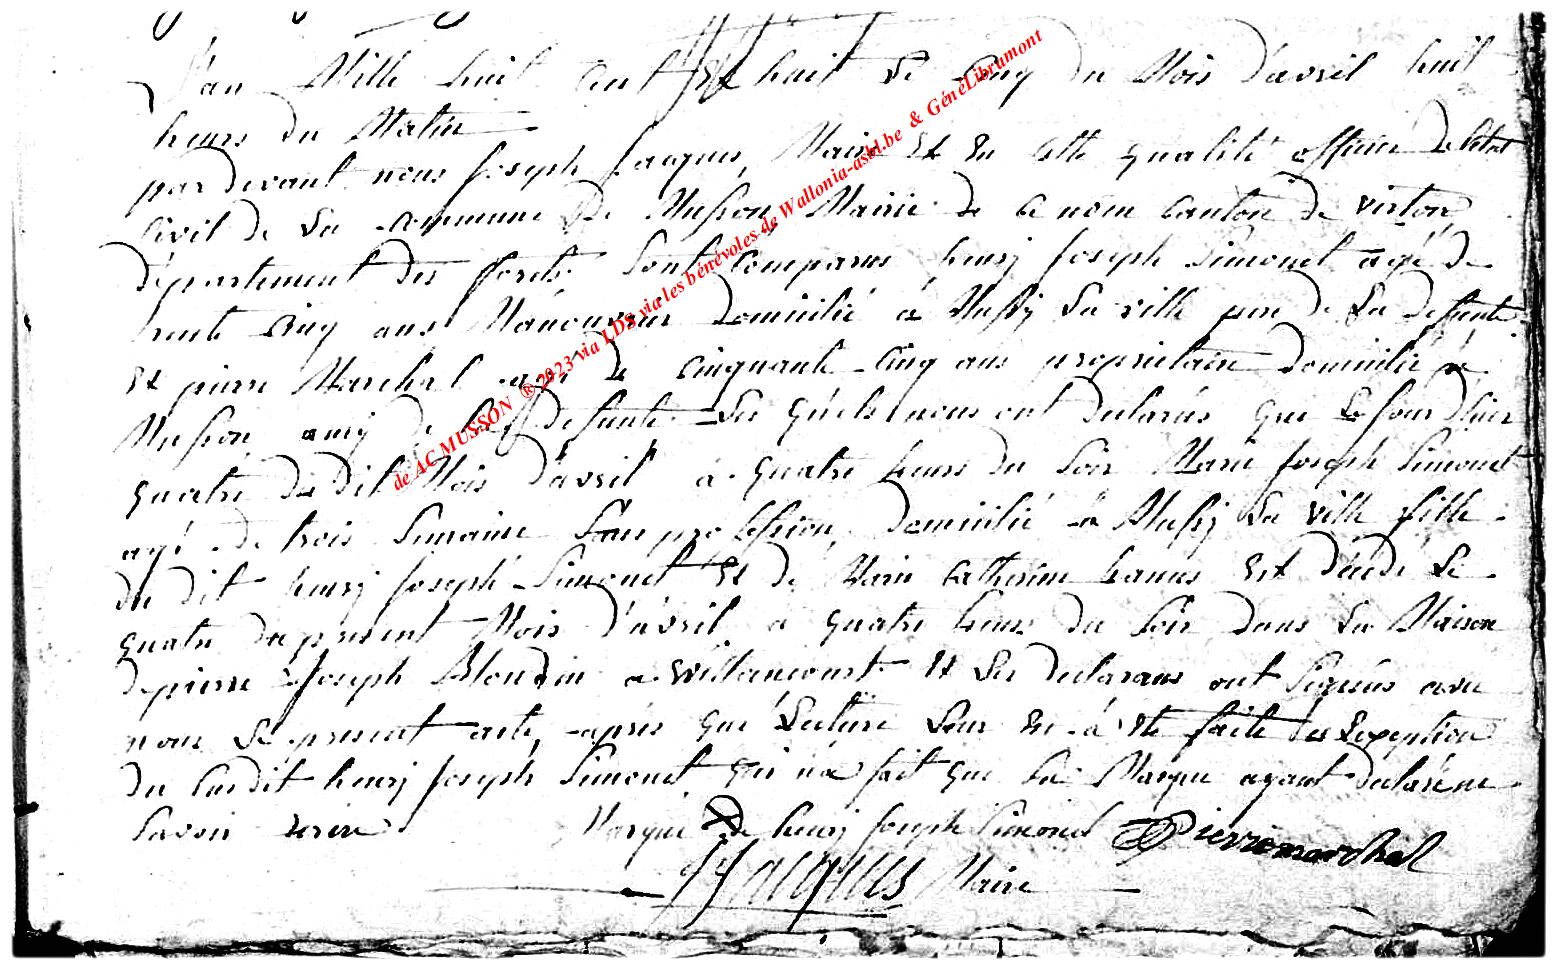 L'an Mille huit Cent Et huit Le Cinq du Mois d'avril huit
heurs du Matin
par devant nous Joseph Jacques, Maire Et En Cette qualité officier de l'etat
Civil de La commune De Musson, Mairie de Ce nom Canton de virton
département des forêts, Sont Comparus henry Joseph Simonet agé de
trente Cinq ans Manouvrier domicilié à Mussy La ville pere De La defunte
Et pierre Marchal agé de Cinquante Cinq ans proprietaire domicilié à
Musson amy de La defunte Les quels nous ont declarés que Le Jour d'hier
quatre du dit Mois d'avril à quatre heurs du Soir Marie Joseph Simonet
agé de trois Semaine San profession, domicilié à Mussy La ville fille
du dit henry Joseph Simonet Et de Marie Catherine Est décédé Le
quatre du present Mois d'avril à quatre heurs du Soir dans La Maison
de pierre Joseph Blondin a Willancourt Et Les declarans ont Signés avec
nous Le present acte, après que Lecture Leur En à Eté faite à Exception
du Susdit henry Joseph Simonet qui n'a fait que Sa Marque ayant declaré ne
Savoir ecrire
Marque de henry Joseph Simonet Pierre marchal
JJacques Maire
de AC MUSSON ® 2023 via LDS via les bénévoles de Wallonia-asbl.be & GénéLibramont